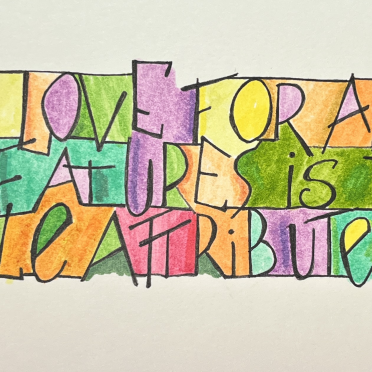 LOVE FOR A
EATURES iS T
Le ATTRiBUTe